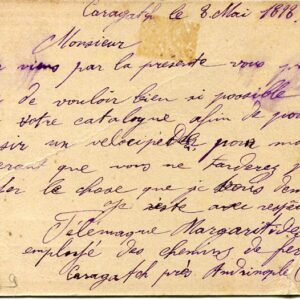 Caragatch le 8 Mai 1898
Monsieur
viens par la présente vous
de vouloir bien si possible
votre catalogue afin de
sir un velocipède pour
que vous ne tarderez
le chose que je vous
Je avec
Télémaque Margaritides
employé des chemins de fer
Caragatch près Andrinople